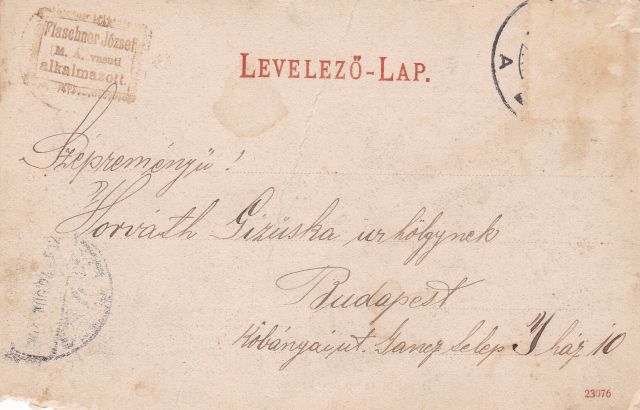 Flaschner József
(M. Á. vasuti
alkalmazott.
LEVELEZŐ-LAP.
A
Szépreményű!
Horváth Gizuska urhölgynek
Budapest
Kőbányai ut. Ganz telep I/ ház 10
23076